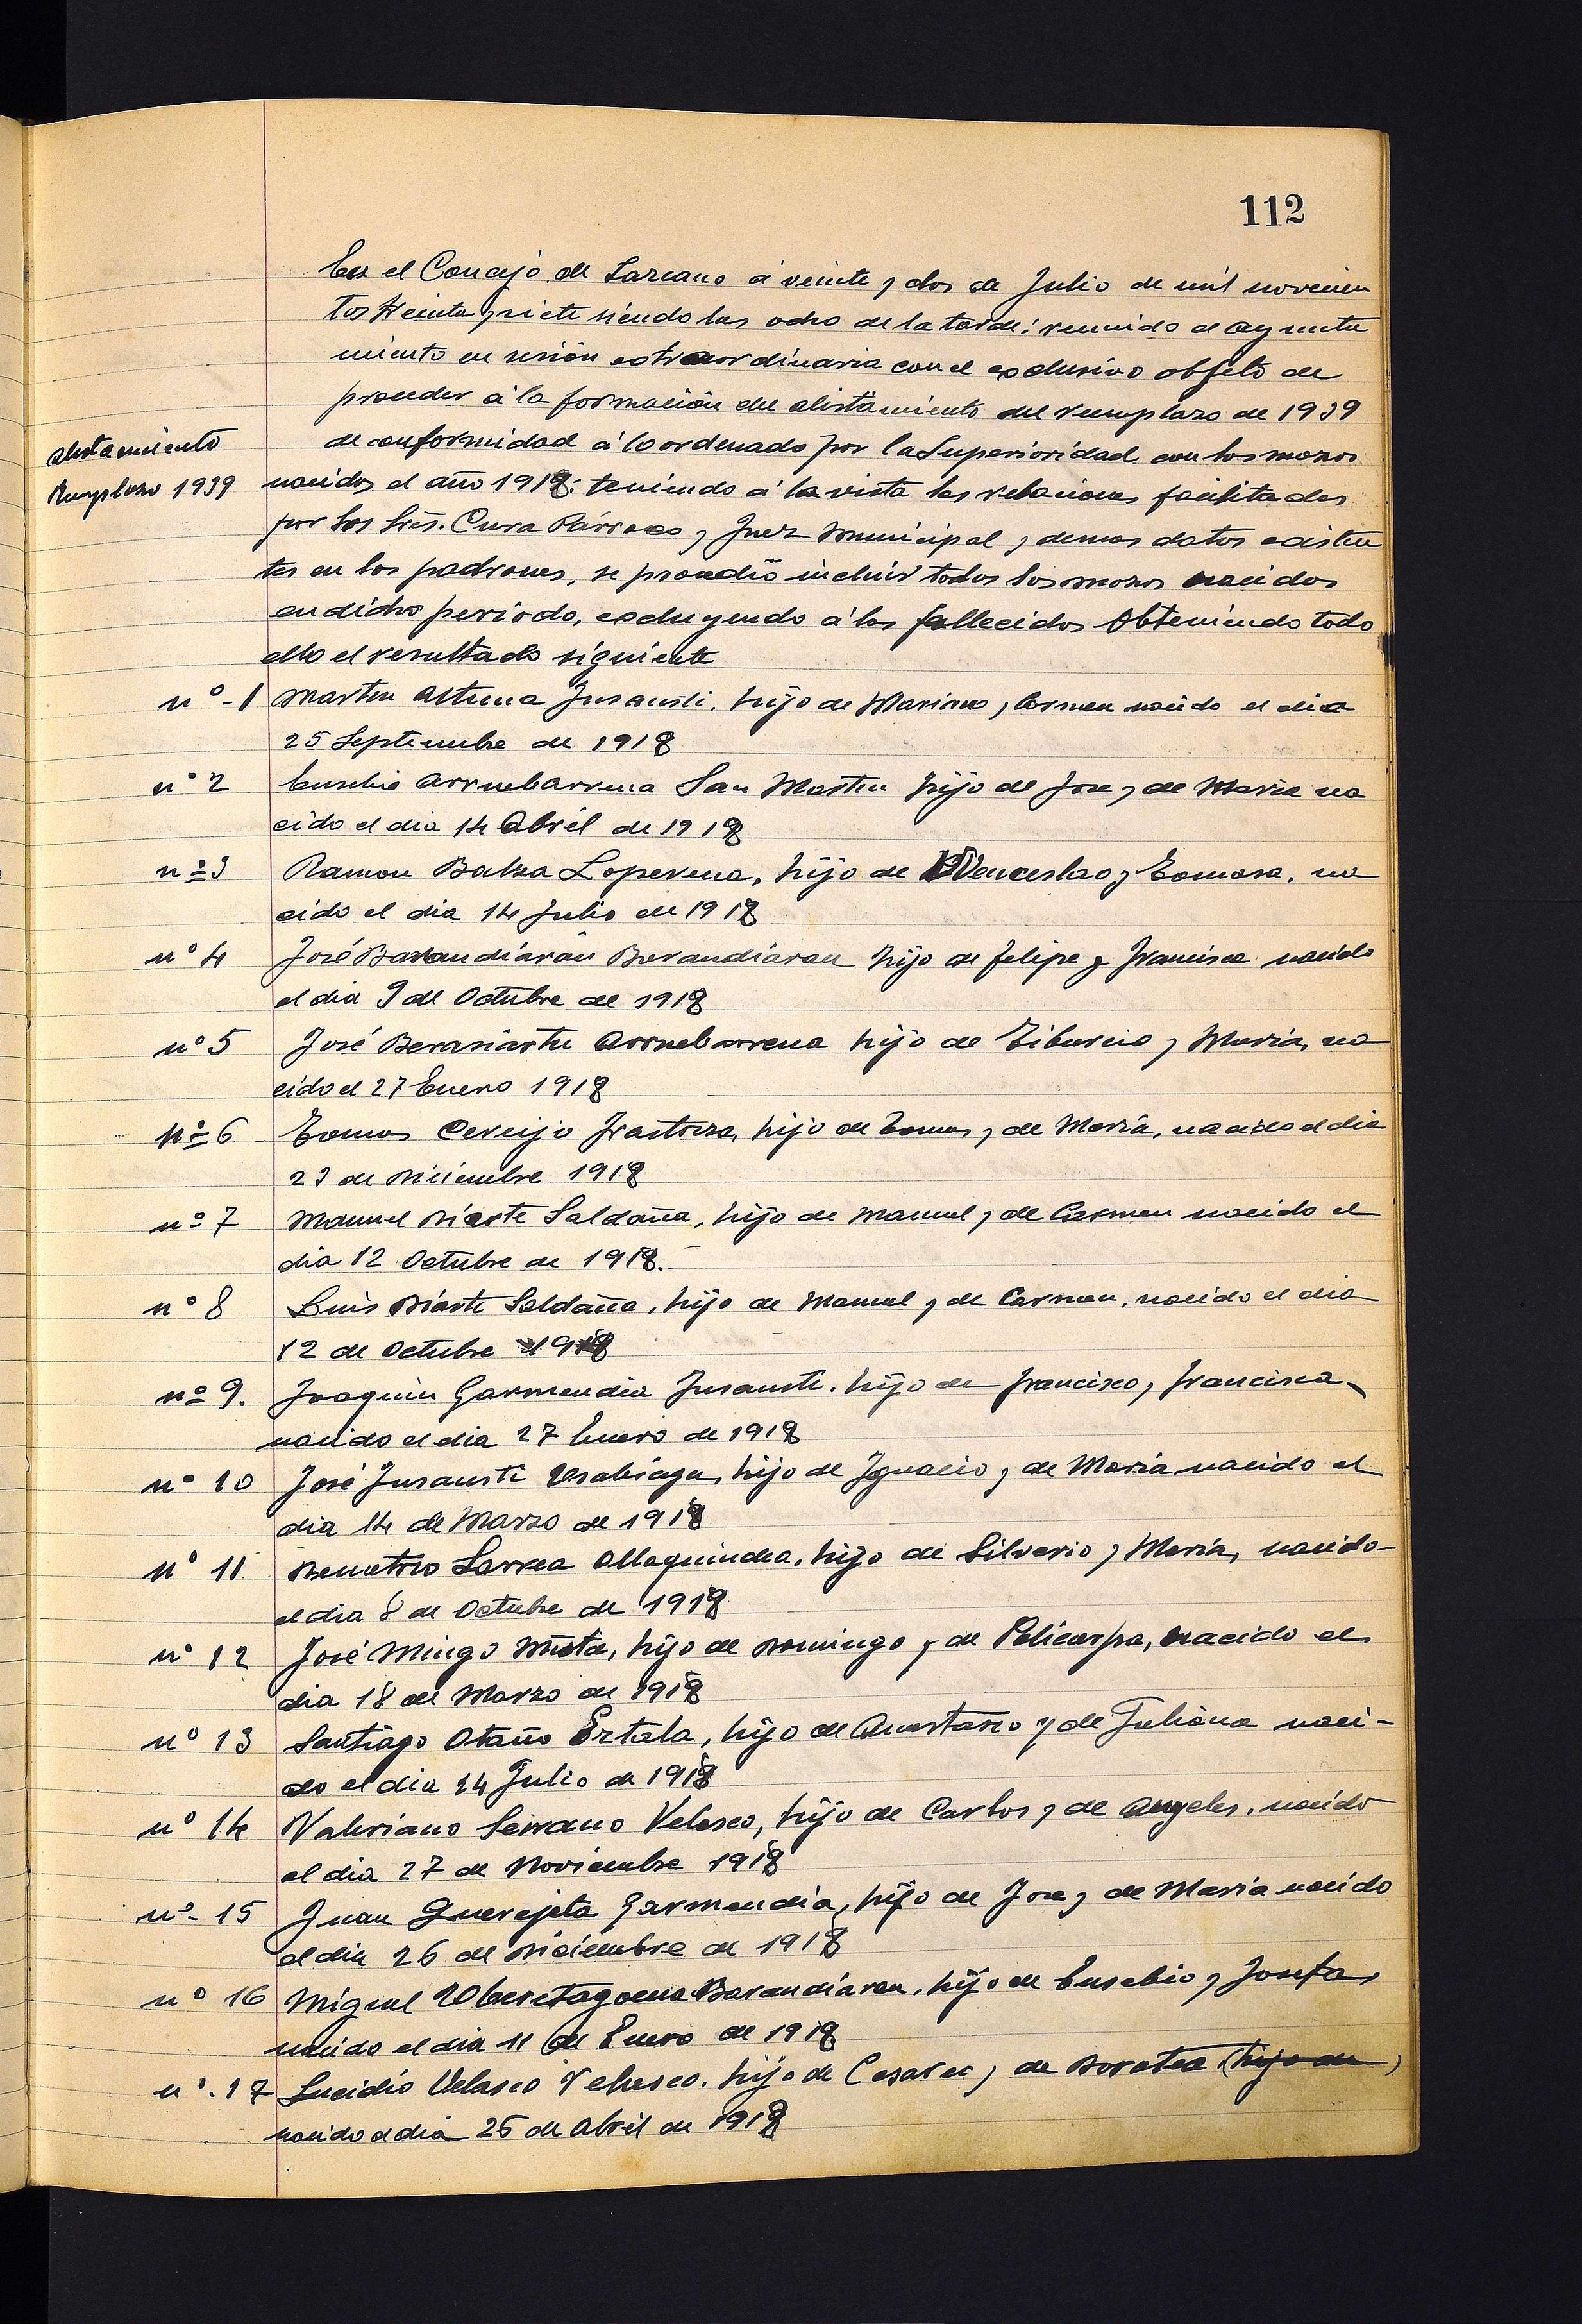 112
En el Concejo de Lazcano á veinte y dos de Julio de mil novecien
tos treinta y siete siendo las ocho de la tarde: reunido el ayunta
miento en sesión extraordinaria con el exclusivo objeto de
proceder á la formación del alistamiento del reemplazo de 1939
alistamiento
Remplazo 1939
de conformidad á lo ordenado por la Superioridad con los mozos
nacidos el año 1918: teniendo á la vista las relaciones facilitadas
por los Srēs. Cura Párroco y Juez Municipal y demas datos existen
tes en los padrones, se procedió incluir todos los mozos nacidos
en dicho período, excluyendo á los fallecidos Obteniendo todo
ello el resultado siguiente
nº-1 Martin Altuna Insausti, hijo de Mariano y Carmen nacido el dia
25 Septiembre de 1918
nº 2 Eusebio Arruebarrena San Martin hijo de Jose y de Maria na
cido el dia 14 Abril de 1918
nº 3 Ramon Balza Loperena, hijo de Wenceslao y Tomasa, na
cido el dia 14 Julio de 1918
nº 4 José Barandiarán Barandiaran hijo de Felipe y Francisca nacido
el dia 9 de Octubre de 1918
nº 5 José Berasiartu Arruebarrena hijo de Tiburcio y Maria, na
cido el 27 Enero 1918
nº 6 Tomas Cereijo Irastorza, hijo de Tomas y de Maria, nacido el dia
23 de Diciembre 1918
nº 7 Manuel Diarte Saldaña, hijo de Manuel y de Carmen nacido el
dia 12 Octubre de 1918.
nº 8 Luis Diarte Saldaña, hijo de Manuel y de Carmen, nacido el dia
12 de Octubre 1918
nº 9. Joaquin Garmendia Insausti. hijo de Francisco y Francisca
nacido el dia 27 Enero de 1918
nº 10 José Insausti Usabiaga, hijo de Ignacio y de Maria nacido el
dia 14 de Marzo de 1918
nº 11 Demetrio Larrea Ollaquindia, hijo de Silverio y Maria, nacido
el dia 8 de Octubre de 1918
nº 12 José Mingo, hijo de Domingo y de Policarpa, nacido el
dia 18 de Marzo de 1918
nº 13 Santiago Otaño Eztala, hijo de Anastasio y de Juliana naci-
do el dia 24 Julio de 1918
nº 14 Valeriano Serrano Velasco, hijo de Carlos y de Angeles, nacido
el dia 27 de Noviembre 1918
nº- 15 Juan Querejeta Garmendia, hijo de Jose y de Maria nacido
el dia 26 de Diciembre de 1918
nº 16 Miguel Uberetagoena Barandiaran, hijo de Eusebio y Josefa
nacido el dia 11 de Enero de 1918
nº. 17 Lucidio Velasco Velasco. hijo de Cesareo y de Dorotea (hijo de)
nacido el dia 25 de Abril de 1918